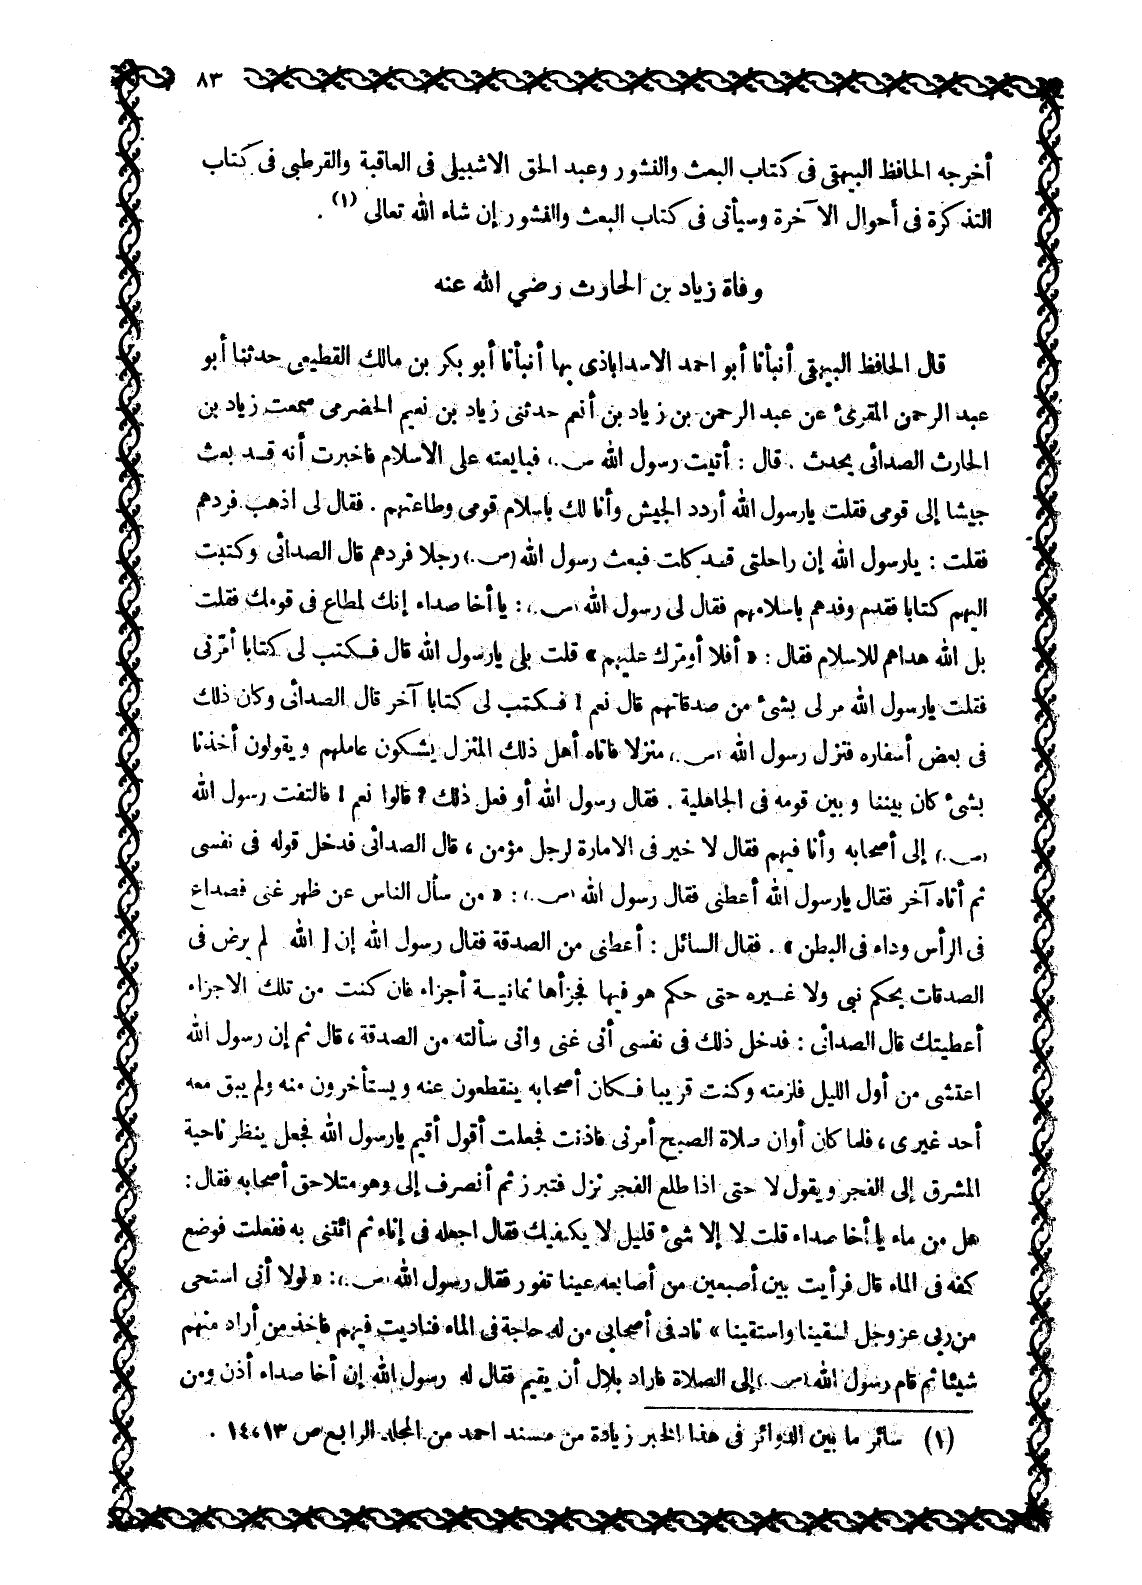 ٨٣
أخرجه الحافظ البيهقى فى كتاب البعث والنشور وعبد الحق الاشبيلى فى العاقبة والقرطبى فى كتاب
التذكرة فى أحوال الآخرة وسيأتى فى كتاب البعث والنشور إن شاء الله تعالى (١) .
وفاة زياد بن الحارث رضي الله عنه
قال الحافظ البيهقى أنبأنا أبو احمد الاسداباذى بها أنبأنا أبو بكر بن مالك القطيعى حدثنا أبو
عبد الرحمن المقرئ عن عبد الرحمن بن زياد بن أنعم حدثنى زياد بن نعيم الحضرمى سمعت زياد بن
الحارث الصدائى يحدث . قال : أتيت رسول الله (ص.) فبايعته على الاسلام فاخبرت أنه قد بعث
جيشا إلى قومى فقلت يارسول الله أردد الجيش وأنا لك باسلام قومى وطاعتهم . فقال لى اذهب فردهم
فقلت : يارسول الله إن راحلتى قد كلت فبعث رسول الله (ص.) رجلا فردهم قال الصدائى وكتبت
اليهم كتابا فقدم وفدهم باسلامهم فقال لى رسول الله (ص.) : يا أخا صداء إنك لمطاع فى قومك فقلت
بل الله هداهم للاسلام فقال : « أفلا أومرك عليهم » قلت بلى يارسول الله قال فكتب لى كتابا أمّرنى
فقلت يارسول الله مر لى بشئ من صدقاتهم قال نعم ! فكتب لى كتابا آخر قال الصدائى وكان ذلك
فى بعض أسفاره فنزل رسول الله (ص.) منزلا فاتاه أهل ذلك المنزل يشكون عاملهم ويقولون أخذنا
بشئ كان بيننا وبين قومه فى الجاهلية . فقال رسول الله أو فعل ذلك ؟ قالوا نعم ! فالتفت رسول الله
(ص.) إلى أصحابه وأنا فيهم فقال لا خير فى الامارة لرجل مؤمن ، قال الصدائى فدخل قوله فى نفسى
ثم أتاه آخر فقال يارسول الله أعطنى فقال رسول الله (ص.) : « من سأل الناس عن ظهر غنى فصداع
فى الرأس وداء فى البطن » . فقال السائل : أعطنى من الصدقة فقال رسول الله إن [ الله لم يرض فى
الصدقات بحكم نبى ولا غيره حتى حكم هو فيها فجزأها ثمانية أجزاء فان كنت من تلك الاجزاء
أعطيتك قال الصدائى : فدخل ذلك فى نفسى أنى غنى وانى سألته من الصدقة ، قال ثم إن رسول الله
اعتشى من أول الليل فلزمته وكنت قريبا فكان أصحابه ينقطعون عنه ويستأخرون منه ولم يبق معه
أحد غيرى ، فلما كان أوان صلاة الصبح أمرنى فاذنت فجعلت أقول أقيم يارسول الله فجعل ينظر ناحية
المشرق إلى الفجر ويقول لا حتى اذا طلع الفجر نزل فتبرز ثم أنصرف إلى وهو متلاحق أصحابه فقال :
هل من ماء يا أخا صداء قلت لا إلا شئ قليل لا يكفيك فقال اجعله فى إناء ثم ائتنى به ففعلت فوضع
كفه فى الماء قال فرأيت بين أصبعين من أصابعه عينا تفور فقال رسول الله (ص.) : « لولا أنى استحى
من ربى عز وجل لسقينا واستقينا » ناد فى أصحابى من له حاجة فى الماء فناديت فيهم فاخذ من أراد منهم
شيئا ثم قام رسول الله (ص.) إلى الصلاة فاراد بلال أن يقيم فقال له رسول الله إن أخا صداء أذن ومن
(١) سائر ما بين الدوائر فى هذا الخبر زيادة من مسند احمد من المجلد الرابع ص ١٣،١٤ .